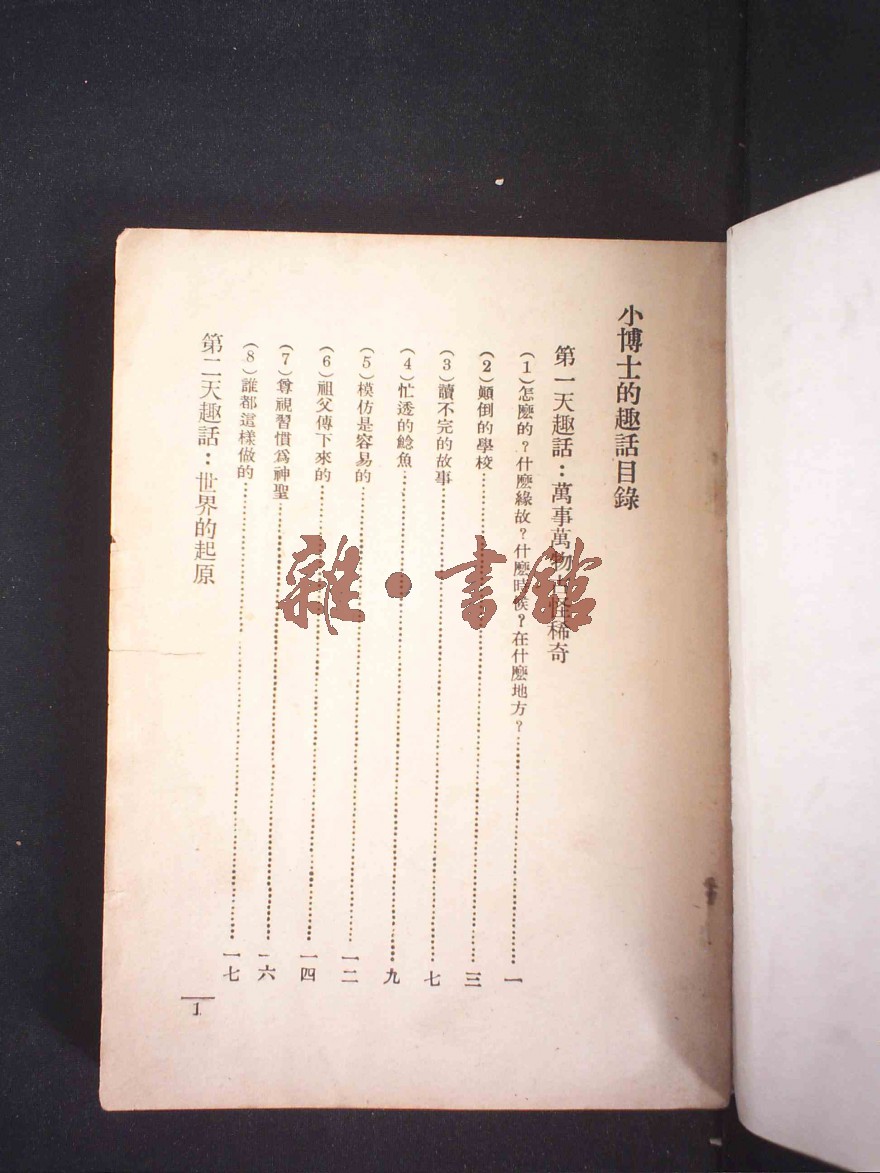 小博士的趣話目錄
第一天趣話：萬事萬物古怪稀奇
（1）怎麽的？什麽緣故？什麽時候？在什麽地方？…………一
（2）顚倒的學校…………三
（3）讀不完的故事…………七
（4）忙透的鯰魚…………九
（5）模仿是容易的…………一二
（6）祖父傳下來的…………一四
（7）尊視習慣爲神聖…………一六
（8）誰都這樣做的…………一七
第二天趣話：世界的起原
1
雜·書館